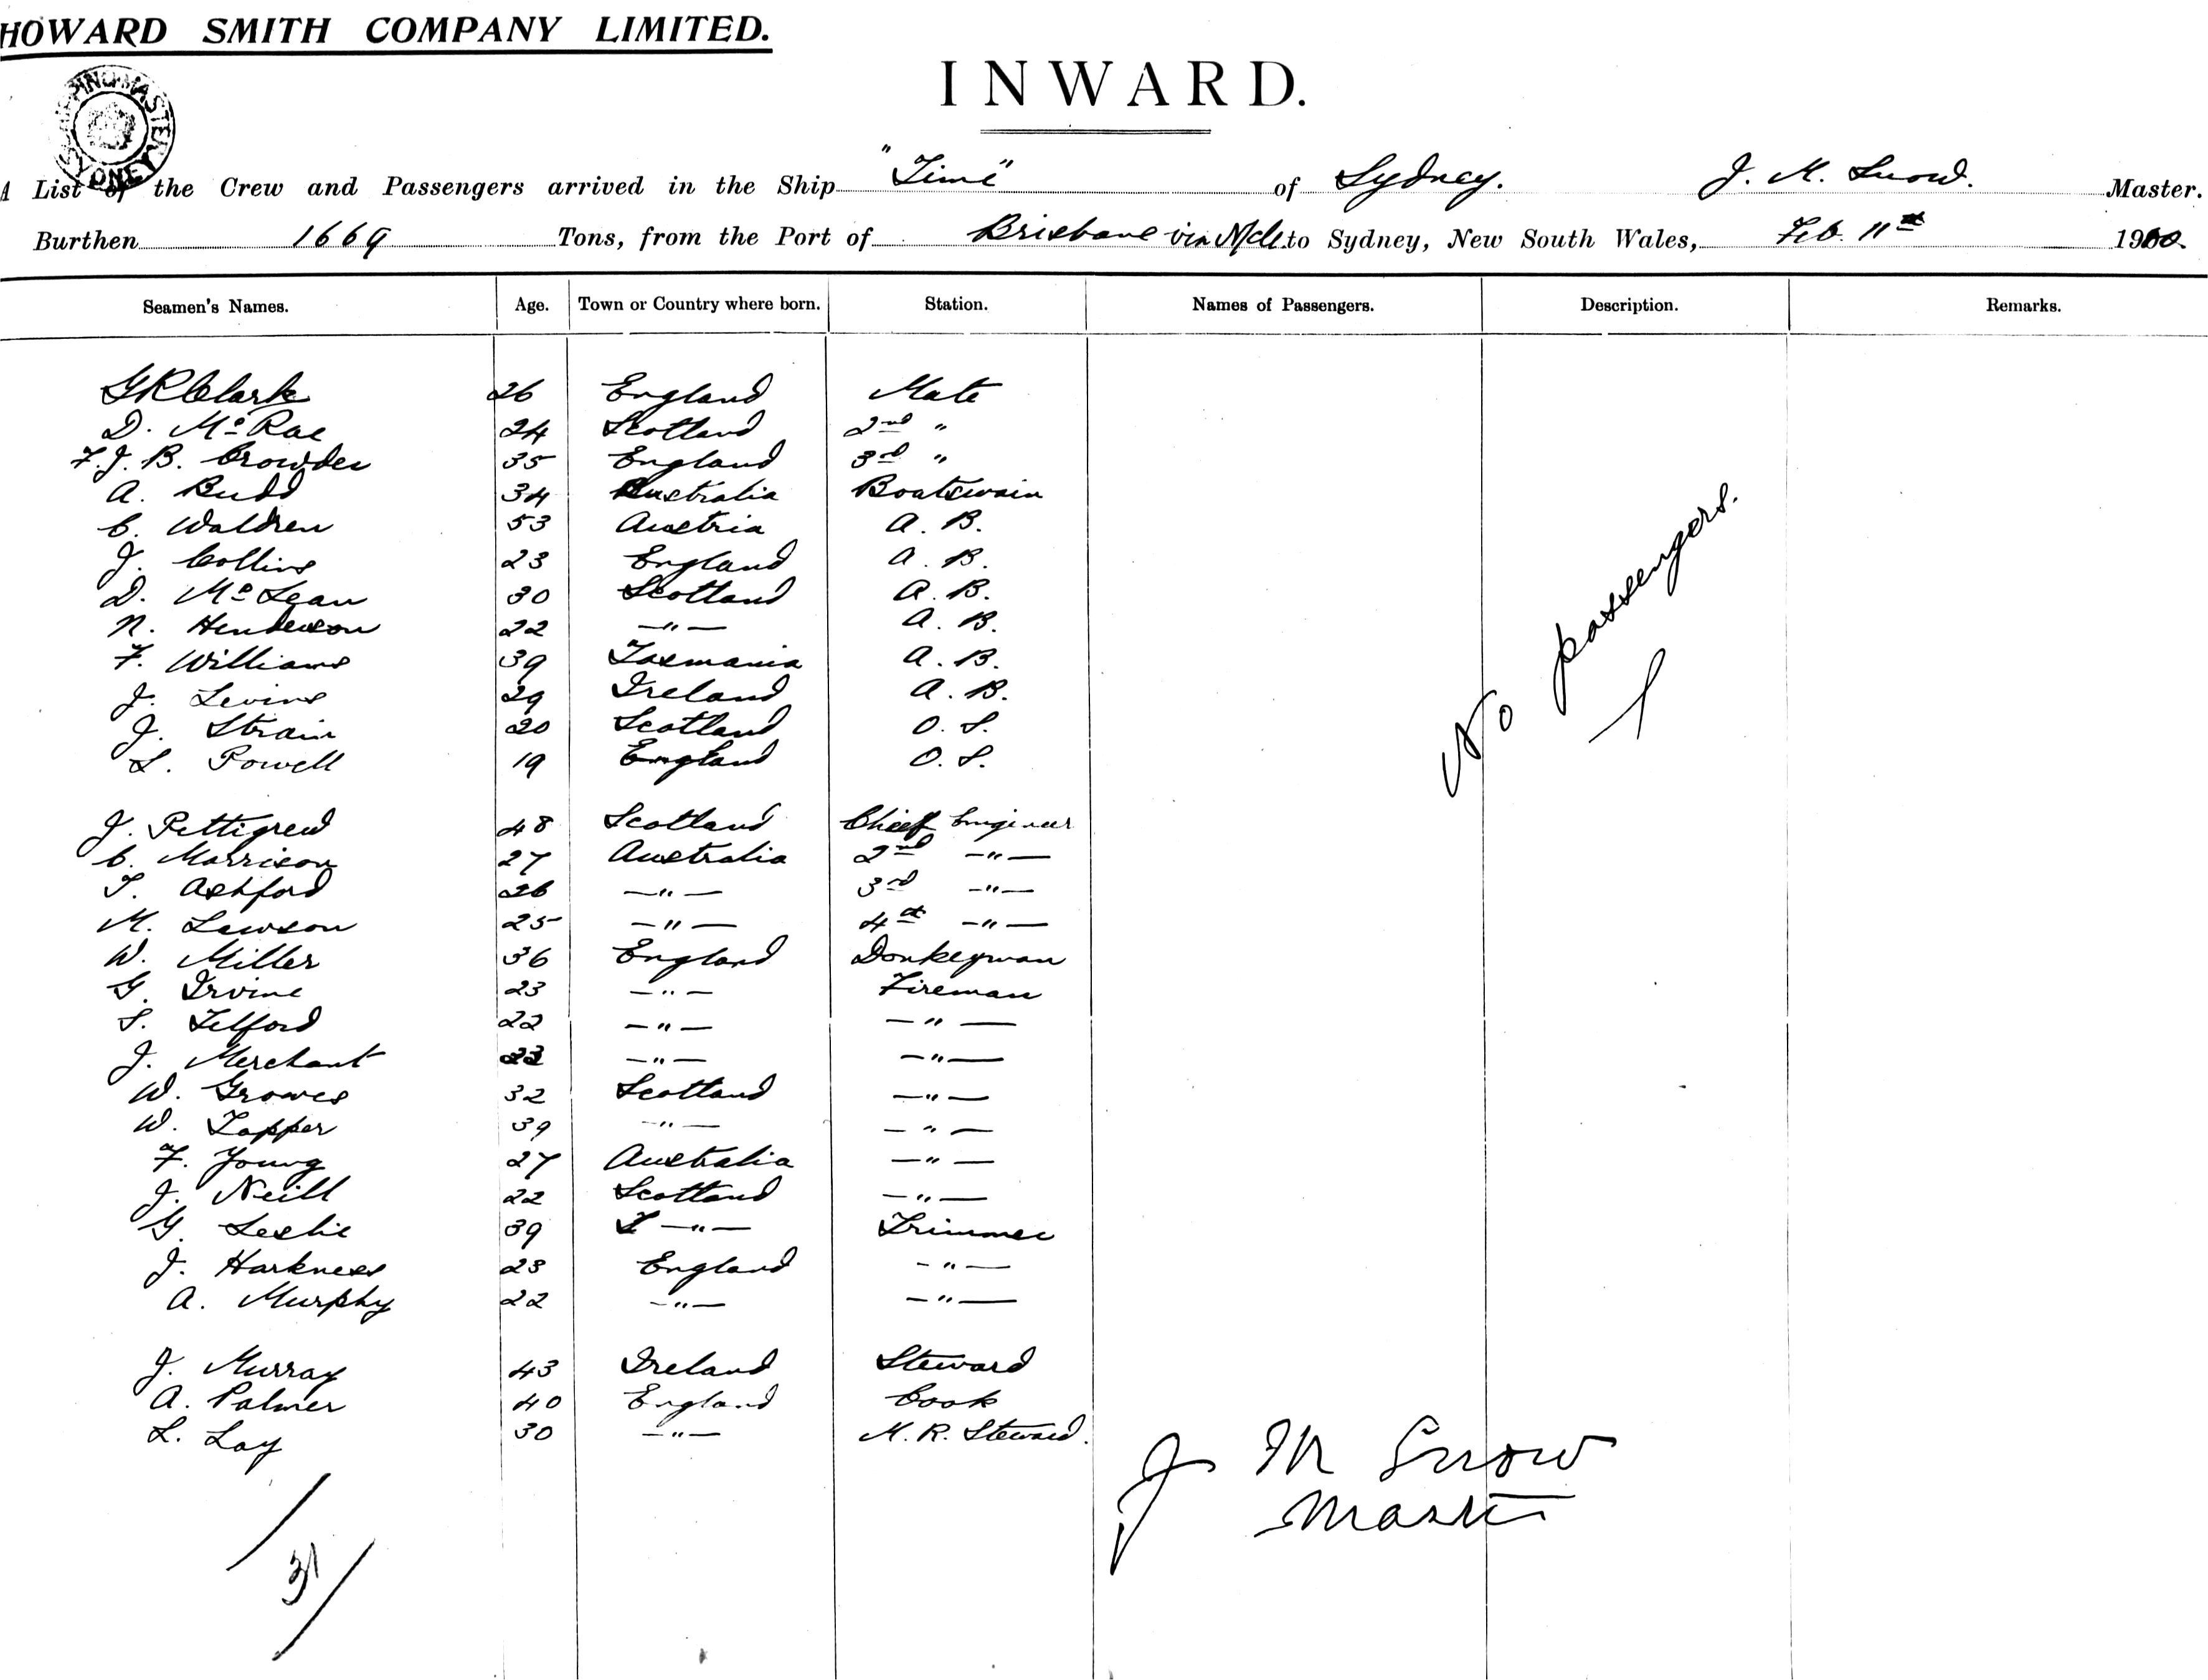 HOWARD SMITH COMPANY LIMITED.
INWARD.
SHIPPING MASTER SYDNEY
A List of the Crew and Passengers arrived in the Ship "Time" of Sydney. J. M. Snow. Master.
Burthen 1669 Tons, from the Port of Brisbane via N/cle to Sydney, New South Wales, Feb. 11th 1910.
Seamen's Names. Age. Town or Country where born. Station. Names of Passengers. Description. Remarks.
G R Clark 26 England Mate
D. McRae 24 Scotland 2nd "
F. J. B. Crowder 35 England 3rd "
A. Budd 34 Australia Boatswain
C. Waldren 53 Austria A. B.
J. Collins 23 England A. B.
D. McLean 30 Scotland A. B.
N. Henderson 22 —"— A. B.
F. Williams 39 Tasmania A. B.
J. Levins 29 Ireland A. B.
J. Strain 20 Scotland O. S.
S. Powell 19 England O. S.
No passengers.
J. Pettigrew 48 Scotland Chief Engineer
C. Morrison 27 Australia 2nd —"—
T. Ashford 26 —"— 3rd —"—
M. Lawson 25 —"— 4th —"—
W. Miller 36 England Donkeyman
G. Irvine 23 —"— Fireman
S. Telford 22 —"— —"—
J. Merchant 23 —"— —"—
W. Groves 32 Scotland —"—
W. Tapper 39 —"— —"—
F. Young 27 Australia —"—
J. Neill 22 Scotland —"—
G. Leslie 39 —"— Trimmer
J. Harkness 23 England —"—
A. Murphy 22 —"— —"—
J. Murray 43 Ireland Steward
A. Palmer 40 England Cook
L. Lay 30 —"— M. R. Steward.
J M Snow
Master
31